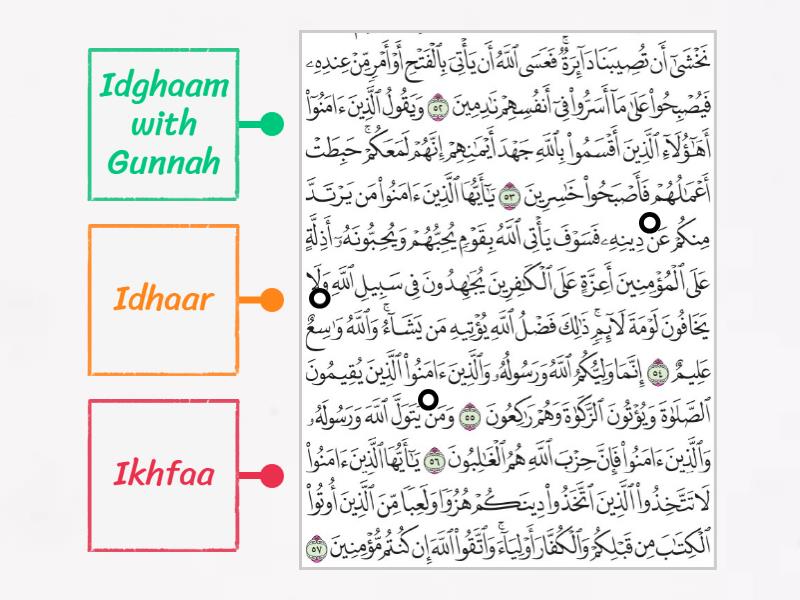 Idghaam
with
Gunnah
Idhaar
Ikhfaa
نَخْشَىٰٓ أَن تُصِيبَنَا دَآئِرَةٌ ۚ فَعَسَى ٱللَّهُ أَن يَأْتِىَ بِٱلْفَتْحِ أَوْ أَمْرٍ مِّنْ عِندِهِۦ
فَيُصْبِحُوا۟ عَلَىٰ مَآ أَسَرُّوا۟ فِىٓ أَنفُسِهِمْ نَٰدِمِينَ ٥٢ وَيَقُولُ ٱلَّذِينَ ءَامَنُوٓا۟
أَهَٰٓؤُلَآءِ ٱلَّذِينَ أَقْسَمُوا۟ بِٱللَّهِ جَهْدَ أَيْمَٰنِهِمْ إِنَّهُمْ لَمَعَكُمْ ۚ حَبِطَتْ
أَعْمَٰلُهُمْ فَأَصْبَحُوا۟ خَٰسِرِينَ ٥٣ يَٰٓأَيُّهَا ٱلَّذِينَ ءَامَنُوا۟ مَن يَرْتَدَّ
مِنكُمْ عَن دِينِهِۦ فَسَوْفَ يَأْتِى ٱللَّهُ بِقَوْمٍ يُحِبُّهُمْ وَيُحِبُّونَهُۥٓ أَذِلَّةٍ
عَلَى ٱلْمُؤْمِنِينَ أَعِزَّةٍ عَلَى ٱلْكَٰفِرِينَ يُجَٰهِدُونَ فِى سَبِيلِ ٱللَّهِ وَلَا
يَخَافُونَ لَوْمَةَ لَآئِمٍ ۚ ذَٰلِكَ فَضْلُ ٱللَّهِ يُؤْتِيهِ مَن يَشَآءُ ۚ وَٱللَّهُ وَٰسِعٌ
عَلِيمٌ ٥٤ إِنَّمَا وَلِيُّكُمُ ٱللَّهُ وَرَسُولُهُۥ وَٱلَّذِينَ ءَامَنُوا۟ ٱلَّذِينَ يُقِيمُونَ
ٱلصَّلَوٰةَ وَيُؤْتُونَ ٱلزَّكَوٰةَ وَهُمْ رَٰكِعُونَ ٥٥ وَمَن يَتَوَلَّ ٱللَّهَ وَرَسُولَهُۥ
وَٱلَّذِينَ ءَامَنُوا۟ فَإِنَّ حِزْبَ ٱللَّهِ هُمُ ٱلْغَٰلِبُونَ ٥٦ يَٰٓأَيُّهَا ٱلَّذِينَ ءَامَنُوا۟
لَا تَتَّخِذُوا۟ ٱلَّذِينَ ٱتَّخَذُوا۟ دِينَكُمْ هُزُوًا وَلَعِبًا مِّنَ ٱلَّذِينَ أُوتُوا۟
ٱلْكِتَٰبَ مِن قَبْلِكُمْ وَٱلْكُفَّارَ أَوْلِيَآءَ ۚ وَٱتَّقُوا۟ ٱللَّهَ إِن كُنتُم مُّؤْمِنِينَ ٥٧